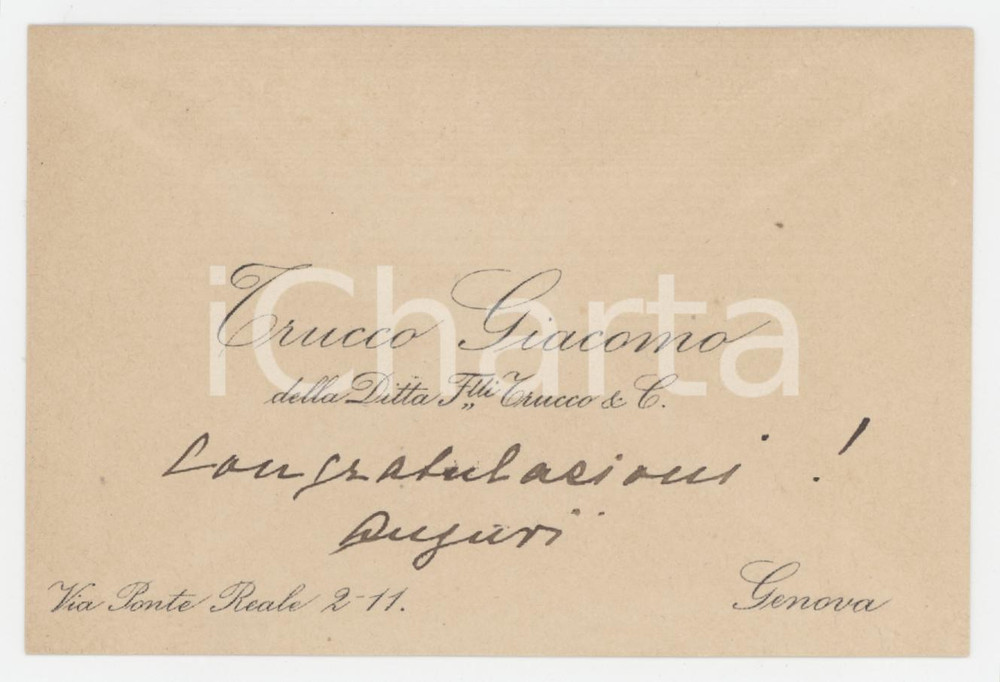 Trucco Giacomo
della Ditta F.lli Trucco & C.
Congratulazioni !
Auguri
Via Ponte Reale 2-11.
Genova
iCharta